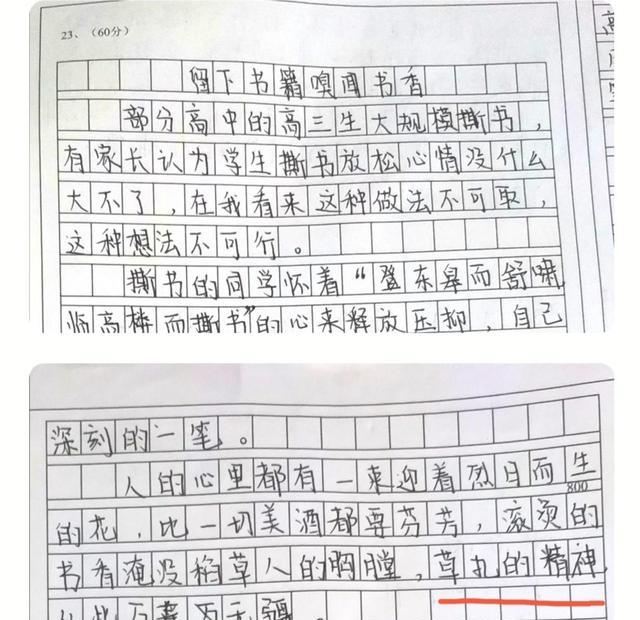 23、（60分）
留下书籍嗅闻书香
部分高中的高三生大规模撕书，
有家长认为学生撕书放松心情没什么
大不了，在我看来这种做法不可取，
这种想法不可行。
撕书的同学怀着“登东皋而舒啸，
临高楼而撕书”的心来释放压抑，自己
深刻的一笔。
人的心里都有一束迎着烈日而生
800
的花，比一切美酒都要芬芳，滚烫的
书香淹没稻草人的胸膛，草扎的精神
从此万寿无疆。